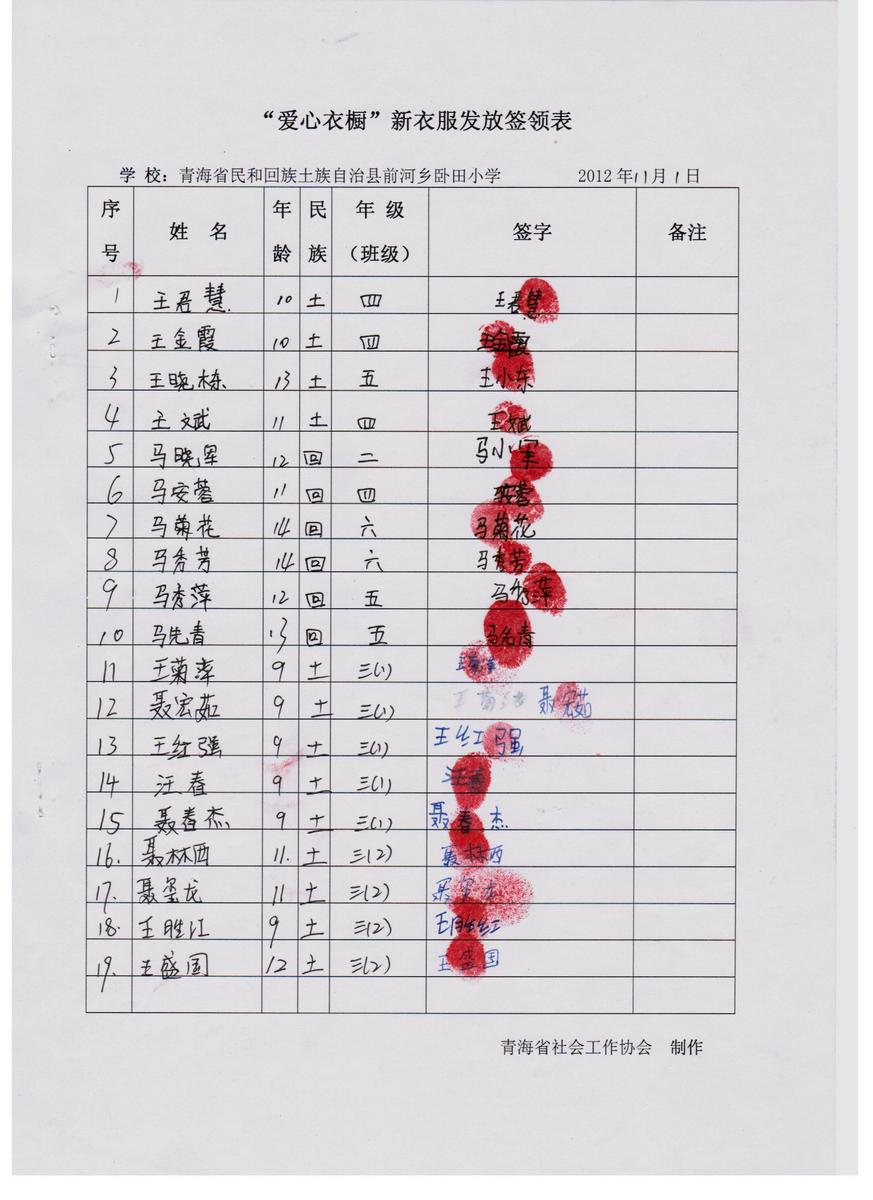 “爱心衣橱”新衣服发放签领表
学 校：青海省民和回族土族自治县前河乡卧田小学 2012年11月1日
序号 姓 名 年龄 民族 年 级（班级） 签字 备注
1 王君慧 10 土 四 王君慧
2 王金霞 10 土 四 王金霞
3 王晓栋 13 土 五 王小东
4 王斌 11 土 四 王斌
5 马晓军 12 回 二 马小军
6 马安蓉 11 回 四
7 马菊花 14 回 六 马菊花
8 马秀芳 14 回 六 马秀芳
9 马秀萍 12 回 五 马秀萍
10 马先青 13 回 五 马先青
11 王菊萍 9 土 三(1) 王菊萍
12 聂宏茹 9 土 三(1) 聂宏茹
13 王红强 9 土 三(1) 王红强
14 汪春 9 土 三(1) 汪春
15 聂春杰 9 土 三(1) 聂春杰
16. 聂林西 11. 土 三(2) 聂林西
17. 聂玺龙 11 土 三(2)
18. 王胜江 9 土 三(2) 王胜红
19. 王盛国 12 土 三(2) 王盛国
青海省社会工作协会 制作